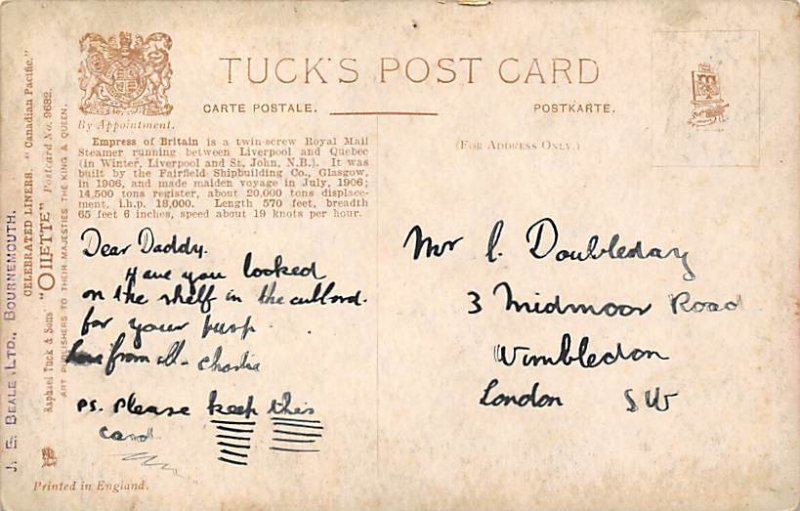 TUCK'S POST CARD
CARTE POSTALE.
POSTKARTE.
By Appointment.
(FOR ADDRESS ONLY.)
Empress of Britain is a twin-screw Royal Mail
Steamer running between Liverpool and Quebec
(in Winter, Liverpool and St. John, N.B.). It was
built by the Fairfield Shipbuilding Co., Glasgow,
in 1906, and made maiden voyage in July, 1906;
14,500 tons register, about 20,000 tons displace-
ment, i.h.p. 18,000. Length 570 feet, breadth
65 feet 6 inches, speed about 19 knots per hour.
Dear Daddy.
Have you looked
on the shelf in the
for your
from all -
PS. Please keep this
card
Mr C. Doubleday
3 Midmoor Road
Wimbledon
London SW
J. E. BEALE, LTD., BOURNEMOUTH.
CELEBRATED LINERS. "Canadian Pacific."
Raphael Tuck & Sons' "OILETTE" Postcard No. 9682.
ART PUBLISHERS TO THEIR MAJESTIES THE KING & QUEEN.
Printed in England.